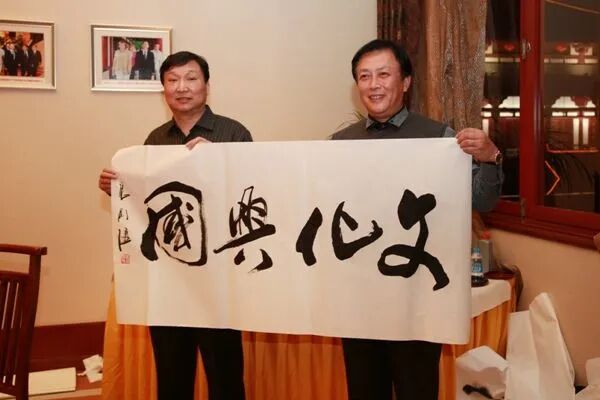 文化興國